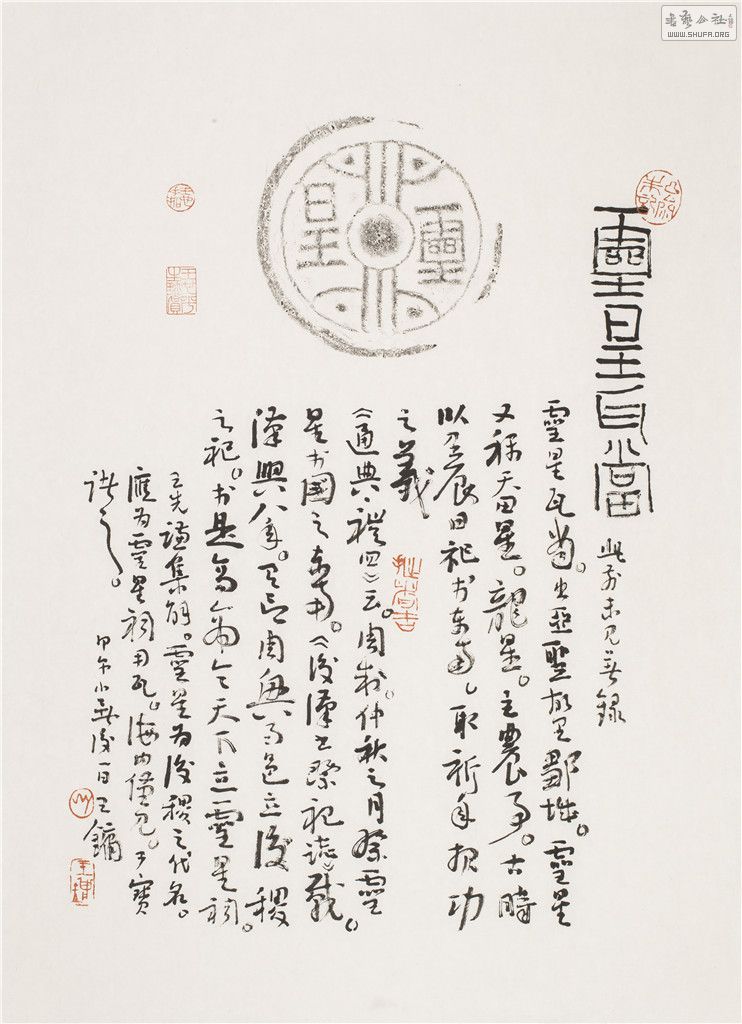 書藝公社
WWW.SHUFA.ORG
靈星
靈星瓦當
此前未見著錄
靈星瓦當。出亞聖故里鄒城。靈星
又稱天田星。龍星。主農事。古時
以壬辰日祀於東南,取祈年報功
之義
《通典禮四》云。周制。仲秋之月祭靈
星於國之東南。《後漢書祭祀志》載。
漢興八年。有言周興而邑立後稷
之祀。於是高帝令天下立靈星祠。
王先謙集解。靈星為後稷之代名。
應為靈星祠用瓦。海內僅見。可寶
之。
甲午小寒後一日王鏞